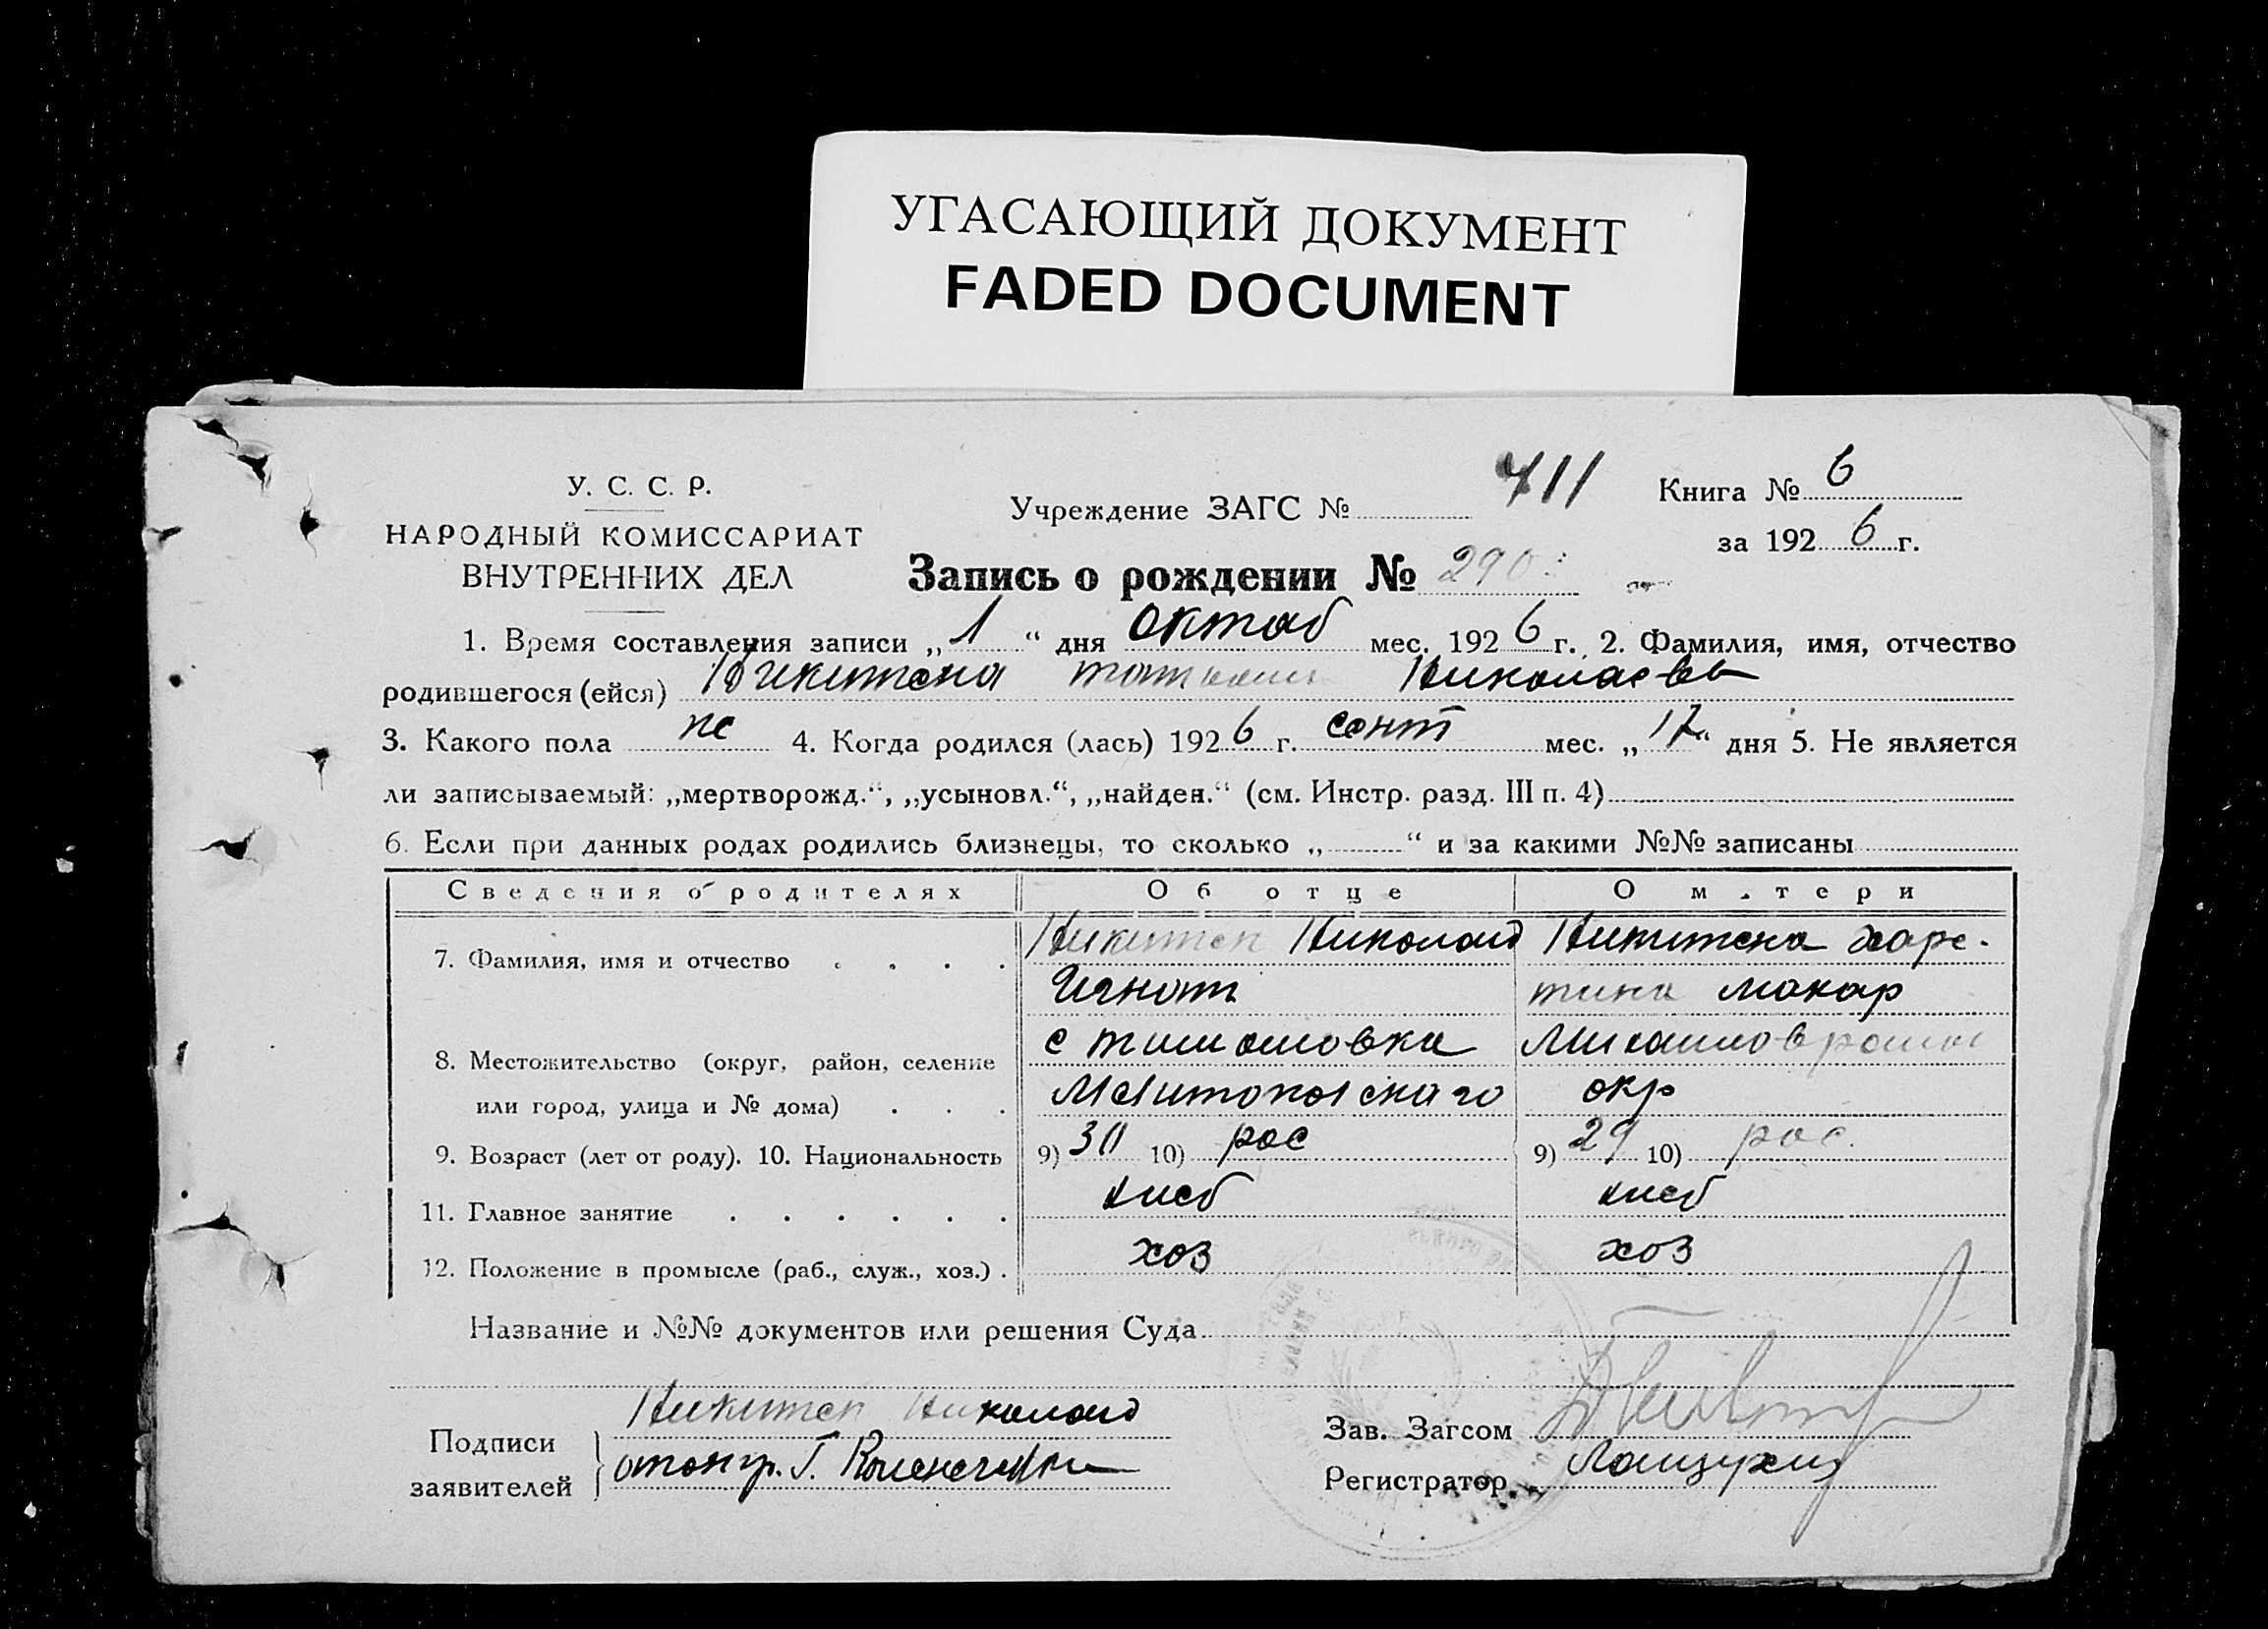 УГАСАЮЩИЙ ДОКУМЕНТ
FADED DOCUMENT
У. С. С. Р.
НАРОДНЫЙ КОМИССАРИАТ
ВНУТРЕННИХ ДЕЛ
Учреждение ЗАГС № 411
Книга № 6
за 1926 г.
Запись о рождении № 290
1. Время составления записи „1“ дня октяб мес. 1926 г. 2. Фамилия, имя, отчество
родившегося (ейся) Никитена Николаевь
3. Какого пола же 4. Когда родился (лась) 1926 г. сент мес. „17“ дня 5. Не является
ли записываемый: „мертворожд.“, „усыновл.“, „найден.“ (см. Инстр. разд. III п. 4)
6. Если при данных родах родились близнецы, то сколько „ “ и за какими №№ записаны
Сведения о родителях Об отце О матери
7. Фамилия, имя и отчество Никитен Николай Никитена харе-
Игнат тина макар
8. Местожительство (округ, район, селение с тимошовка Михаилов
или город, улица и № дома) Мелитопольскаго окр
9. Возраст (лет от роду). 10. Национальность 9) 30 10) рос 9) 29 10) рос.
11. Главное занятие хлеб хлеб
12. Положение в промысле (раб., служ., хоз.) хоз хоз
Название и №№ документов или решения Суда
Подписи
заявителей
Никитен Николай
Зав. Загсом
Регистратор